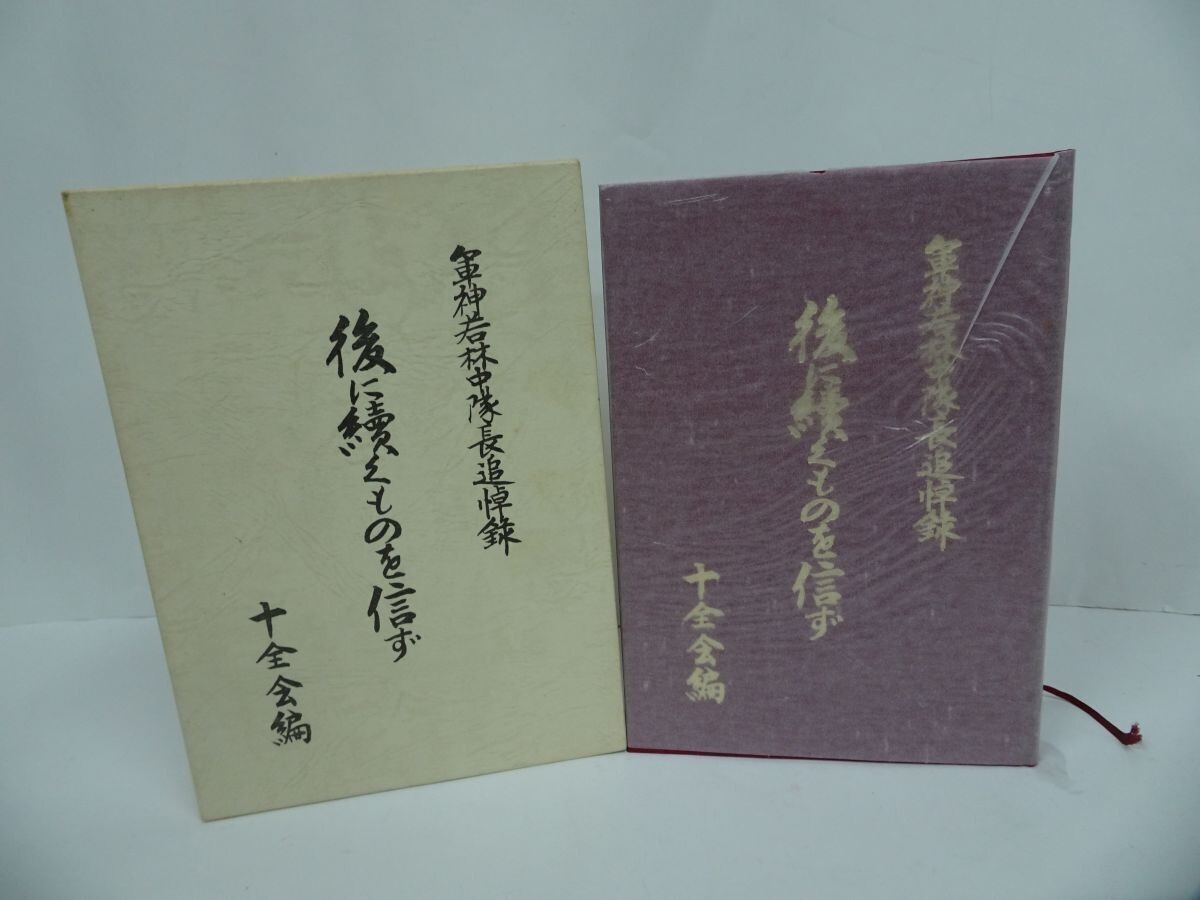 軍神若林中隊長追悼録
後に續くものを信ず
十全会編
軍神若林中隊長追悼録
後に續くものを信ず
十全会編